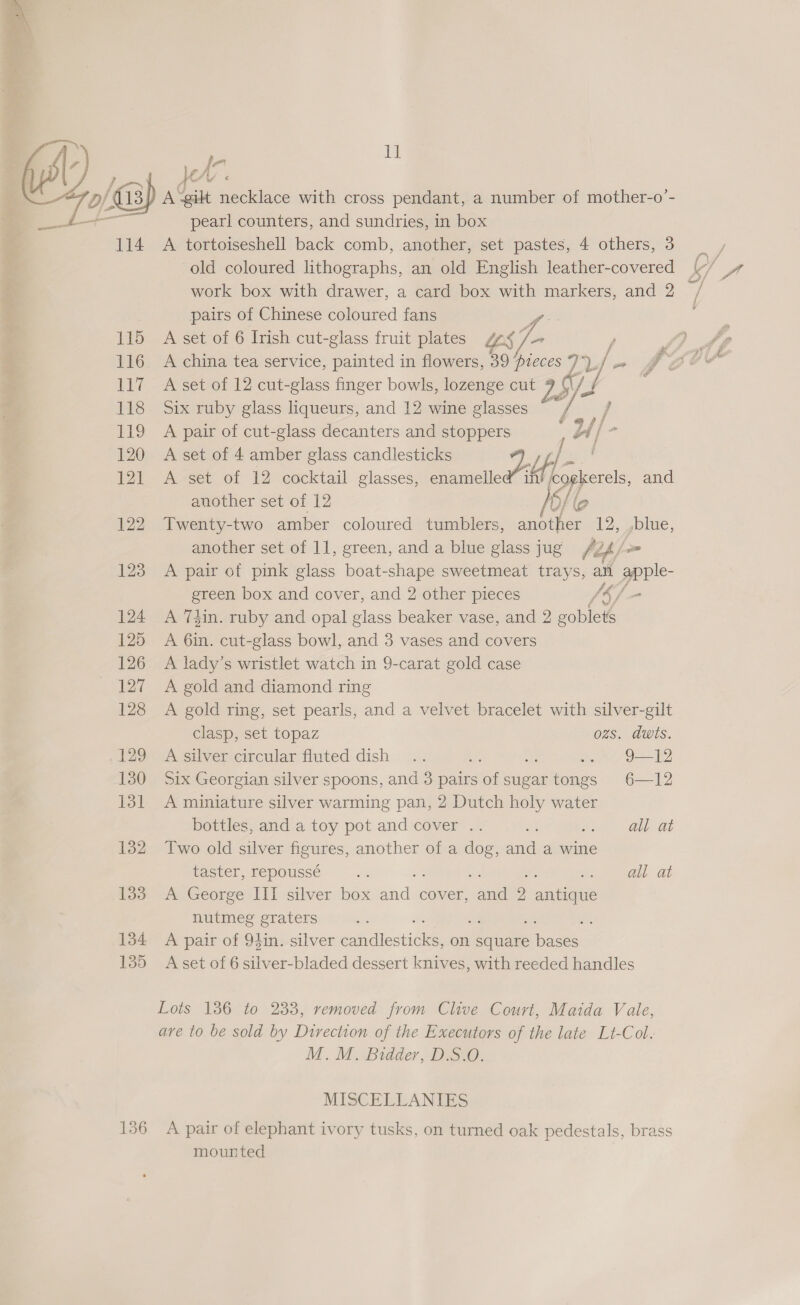 11
113 A gilt necklace with cross pendant, a number of mother-o’-
pearl counters, and sundries, in box
114 A tortoiseshell back comb, another, set pastes, 4 others, 3
old coloured lithographs, an old English leather-covered
work box with drawer, a card box with markers, and 2
pairs of Chinese coloured fans
115 A set of 6 Irish cut-glass fruit plates
116 A china tea service, painted in flowers, 39 pieces
117 A set of 12 cut-glass finger bowls, lozenge cut
118 Six ruby glass liqueurs, and 12 wine glasses
119 A pair of cut-glass decanters and stoppers
120 A set of 4 amber glass candlesticks
121 A set of 12 cocktail glasses, enamelled in cockerels, and
another set of 12
122 Twenty-two amber coloured tumblers, another 12, blue,
another set of 11, green, and a blue glass jug
123 A pair of pink glass boat-shape sweetmeat trays, an apple-
green box and cover, and 2 other pieces
124 A 7½in. ruby and opal glass beaker vase, and 2 goblets
125 A 6in. cut-glass bowl, and 3 vases and covers
126 A lady’s wristlet watch in 9-carat gold case
127 A gold and diamond ring
128 A gold ring, set pearls, and a velvet bracelet with silver-gilt
clasp, set topaz ozs. dwts.
129 A silver circular fluted dish .. .. .. .. 9—12
130 Six Georgian silver spoons, and 3 pairs of sugar tongs 6—12
131 A miniature silver warming pan, 2 Dutch holy water
bottles, and a toy pot and cover .. .. .. all at
132 Two old silver figures, another of a dog, and a wine
taster, repoussé .. .. .. .. .. all at
133 A George III silver box and cover, and 2 antique
nutmeg graters .. .. .. .. ..
134 A pair of 9½in. silver candlesticks, on square bases
135 A set of 6 silver-bladed dessert knives, with reeded handles
Lots 136 to 233, removed from Clive Court, Maida Vale,
are to be sold by Direction of the Executors of the late Lt-Col.
M. M. Bidder, D.S.O.
MISCELLANIES
136 A pair of elephant ivory tusks, on turned oak pedestals, brass
mounted